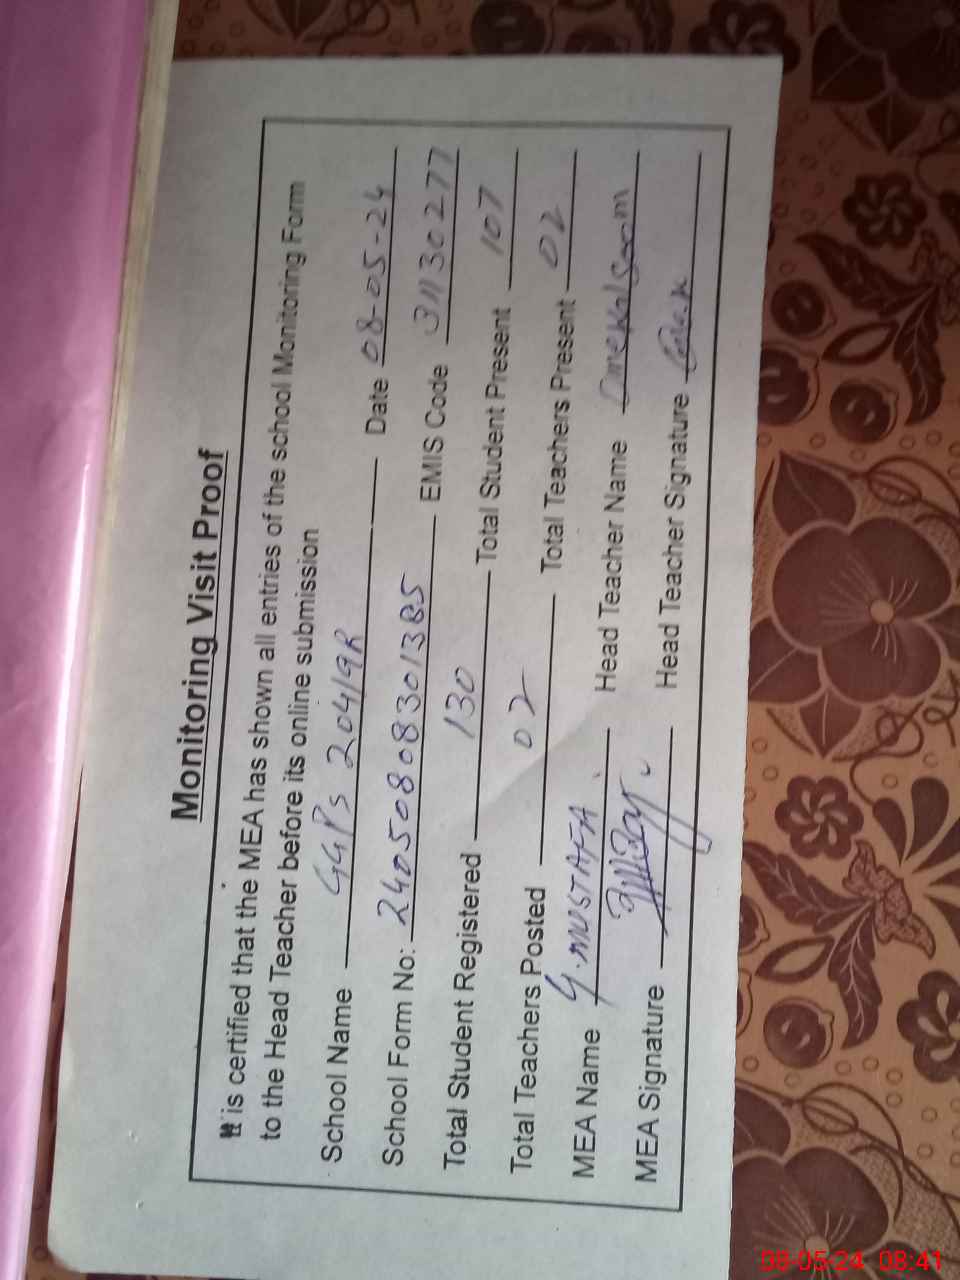 Monitoring Visit Proof
It is certified that the MEA has shown all entries of the school Monitoring Form
to the Head Teacher before its online submission
School Name GGPS 204/9R Date 08-05-24
School Form No: 240508083013B5 EMIS Code 31130277
Total Student Registered 130 Total Student Present 107
Total Teachers Posted 02 Total Teachers Present 02
MEA Name G.MUSTAFA Head Teacher Name
MEA Signature Head Teacher Signature
08-05-24 08:41